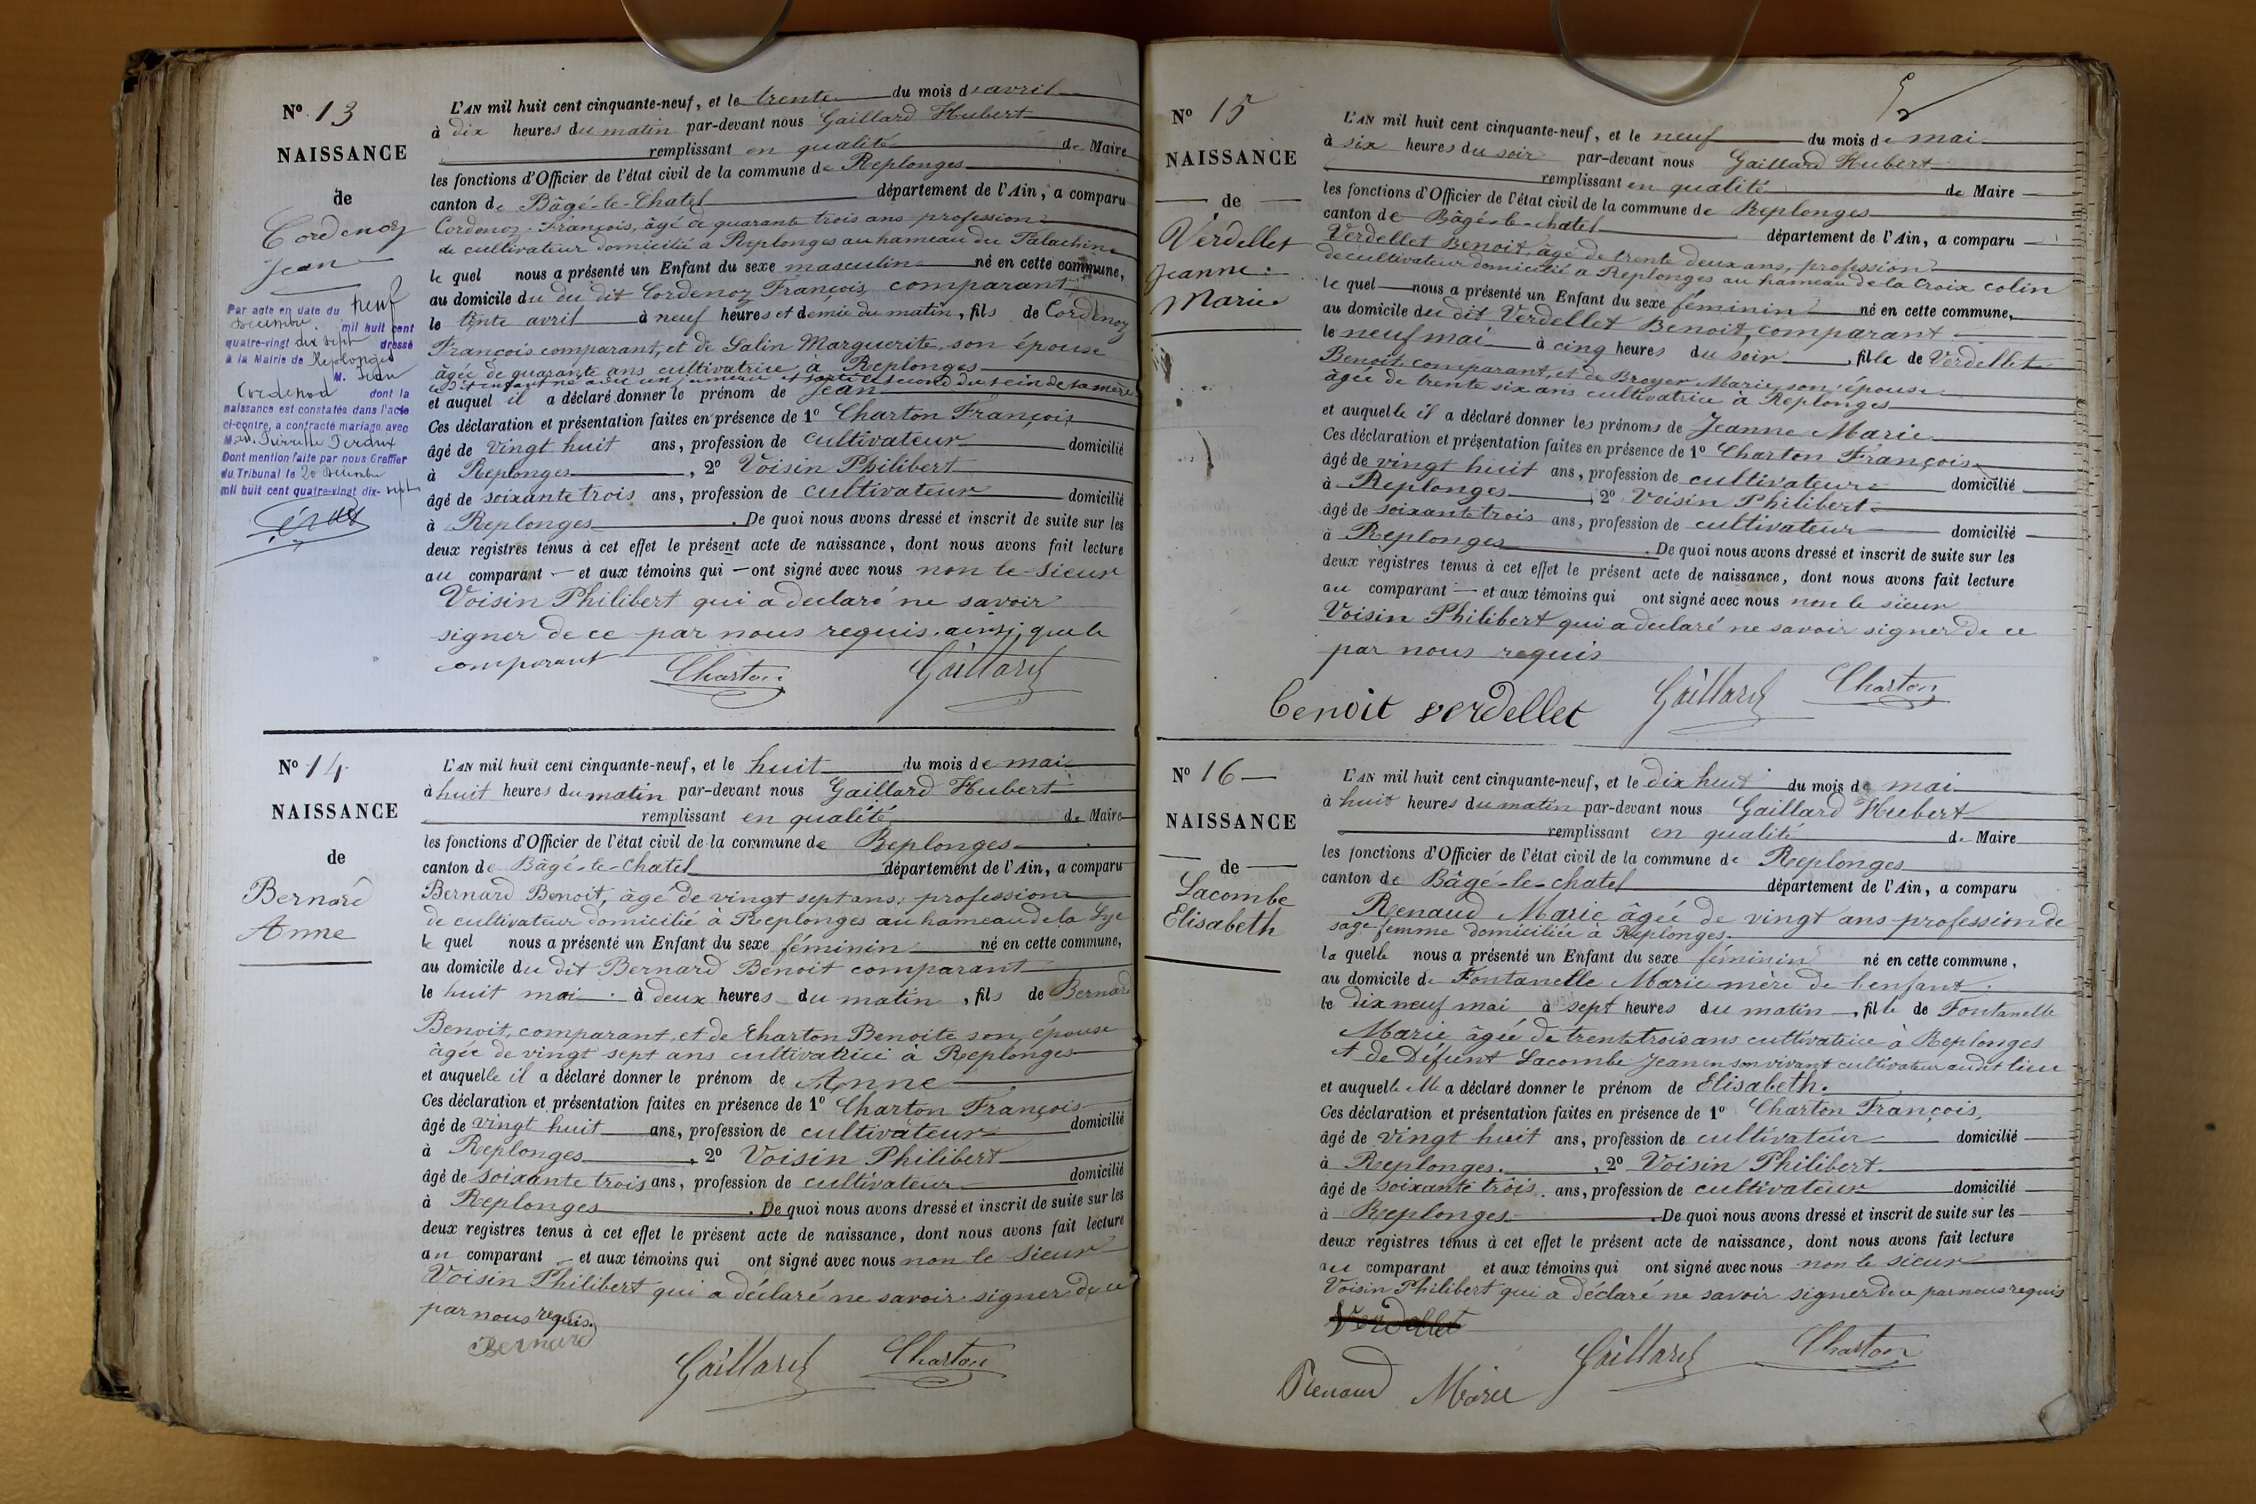 N° 13
NAISSANCE
de
Cordenoz
Jean
Par acte en date du neuf
Décembre mil huit cent
quatre-vingt dix sept dressé
à la Mairie de Replonges
M. Jean
Cordenod dont la
naissance est constatée dans l'acte
ci-contre, a contracté mariage avec
Dont mention faite par nous Greffier
du Tribunal le 20 Décembre
mil huit cent quatre-vingt dix-sept
L'AN mil huit cent cinquante-neuf, et le trente du mois d'avril
à dix heures du matin par-devant nous Gaillard Hubert
remplissant en qualité de Maire
les fonctions d'Officier de l'état civil de la commune de Replonges
canton de Bâgé-le-Chatel département de l'Ain, a comparu
Cordenoz François, âgé de quarante trois ans profession
de cultivateur domicilié à Replonges au hameau du Palachin
le quel nous a présenté un Enfant du sexe masculin né en cette commune,
au domicile du du dit Cordenoz François comparant
le trente avril à neuf heures et demie du matin, fils de Cordenoz
François comparant, et de Galin Marguerite, son épouse
âgée de quarante ans cultivatrice à Replonges
ce dit enfant né avec un jumeau et sorti le second du sein de sa mère
et auquel il a déclaré donner le prénom de Jean
Ces déclaration et présentation faites en présence de 1° Charton François
âgé de vingt huit ans, profession de cultivateur domicilié
à Replonges, 2° Voisin Philibert
âgé de soixante trois ans, profession de cultivateur domicilié
à Replonges. De quoi nous avons dressé et inscrit de suite sur les
deux registres tenus à cet effet le présent acte de naissance, dont nous avons fait lecture
au comparant et aux témoins qui ont signé avec nous non le sieur
Voisin Philibert qui a déclaré ne savoir
signer de ce par nous requis. ainsi que le
comparant Charton Gaillard
N° 14
NAISSANCE
de
Bernard
Anne
L'AN mil huit cent cinquante-neuf, et le huit du mois de mai
à huit heures du matin par-devant nous Gaillard Hubert
remplissant en qualité de Maire
les fonctions d'Officier de l'état civil de la commune de Replonges
canton de Bâgé-le-Chatel département de l'Ain, a comparu
Bernard Benoit, âgé de vingt sept ans, profession
de cultivateur domicilié à Replonges au hameau de la
le quel nous a présenté un Enfant du sexe féminin né en cette commune,
au domicile du dit Bernard Benoit comparant
le huit mai à deux heures du matin, fils de Bernard
Benoit, comparant, et de Charton Benoite son épouse
âgée de vingt sept ans cultivatrice à Replonges
et auquelle il a déclaré donner le prénom de Anne
Ces déclaration et présentation faites en présence de 1° Charton François
âgé de vingt huit ans, profession de cultivateur domicilié
à Replonges, 2° Voisin Philibert
âgé de soixante trois ans, profession de cultivateur domicilié
à Replonges. De quoi nous avons dressé et inscrit de suite sur les
deux registres tenus à cet effet le présent acte de naissance, dont nous avons fait lecture
au comparant et aux témoins qui ont signé avec nous non le sieur
Voisin Philibert qui a déclaré ne savoir signer de ce
par nous requis.
Bernard Gaillard Charton
N° 15
NAISSANCE
de
Verdellet
Jeanne
Marie
L'AN mil huit cent cinquante-neuf, et le neuf du mois de mai
à six heures du soir par-devant nous Gaillard Hubert
remplissant en qualité de Maire
les fonctions d'Officier de l'état civil de la commune de Replonges
canton de Bâgé-le-chatel département de l'Ain, a comparu
Verdellet Benoit, âgé de trente deux ans, profession
de cultivateur domicilié à Replonges au hameau de la Croix colin
le quel nous a présenté un Enfant du sexe féminin né en cette commune,
au domicile du dit Verdellet Benoit, comparant
le neuf mai à cinq heures du soir, fille de Verdellet
Benoit, comparant, et de Broyer Marie, son épouse
âgée de trente six ans cultivatrice à Replonges
et auquelle il a déclaré donner les prénoms de Jeanne Marie
Ces déclaration et présentation faites en présence de 1° Charton François
âgé de vingt huit ans, profession de cultivateur domicilié
à Replonges, 2° Voisin Philibert
âgé de soixante trois ans, profession de cultivateur domicilié
à Replonges. De quoi nous avons dressé et inscrit de suite sur les
deux registres tenus à cet effet le présent acte de naissance, dont nous avons fait lecture
au comparant et aux témoins qui ont signé avec nous non le sieur
Voisin Philibert qui a déclaré ne savoir signer de ce
par nous requis
Benoit verdellet Gaillard Charton
N° 16
NAISSANCE
de
Lacombe
Elisabeth
L'AN mil huit cent cinquante-neuf, et le dix huit du mois de mai
à huit heures du matin par-devant nous Gaillard Hubert
remplissant en qualité de Maire
les fonctions d'Officier de l'état civil de la commune de Replonges
canton de Bâgé-le-chatel département de l'Ain, a comparu
Renaud Marie âgée de vingt ans profession de
sage femme domiciliée à Replonges.
la quelle nous a présenté un Enfant du sexe féminin né en cette commune,
au domicile de Fontanelle Marie mère de l'enfant.
le dix neuf mai à sept heures du matin, fille de Fontanelle
Marie âgée de trente trois ans cultivatrice à Replonges
et de Défunt Lacombe Jean en son vivant cultivateur au dit lieu
et auquelle elle a déclaré donner le prénom de Elisabeth.
Ces déclaration et présentation faites en présence de 1° Charton François
âgé de vingt huit ans, profession de cultivateur domicilié
à Replonges, 2° Voisin Philibert
âgé de soixante trois ans, profession de cultivateur domicilié
à Replonges. De quoi nous avons dressé et inscrit de suite sur les
deux registres tenus à cet effet le présent acte de naissance, dont nous avons fait lecture
au comparant et aux témoins qui ont signé avec nous non le sieur
Voisin Philibert qui a déclaré ne savoir signer de ce par nous requis
Verdellet
Renaud Marie Gaillard Charton